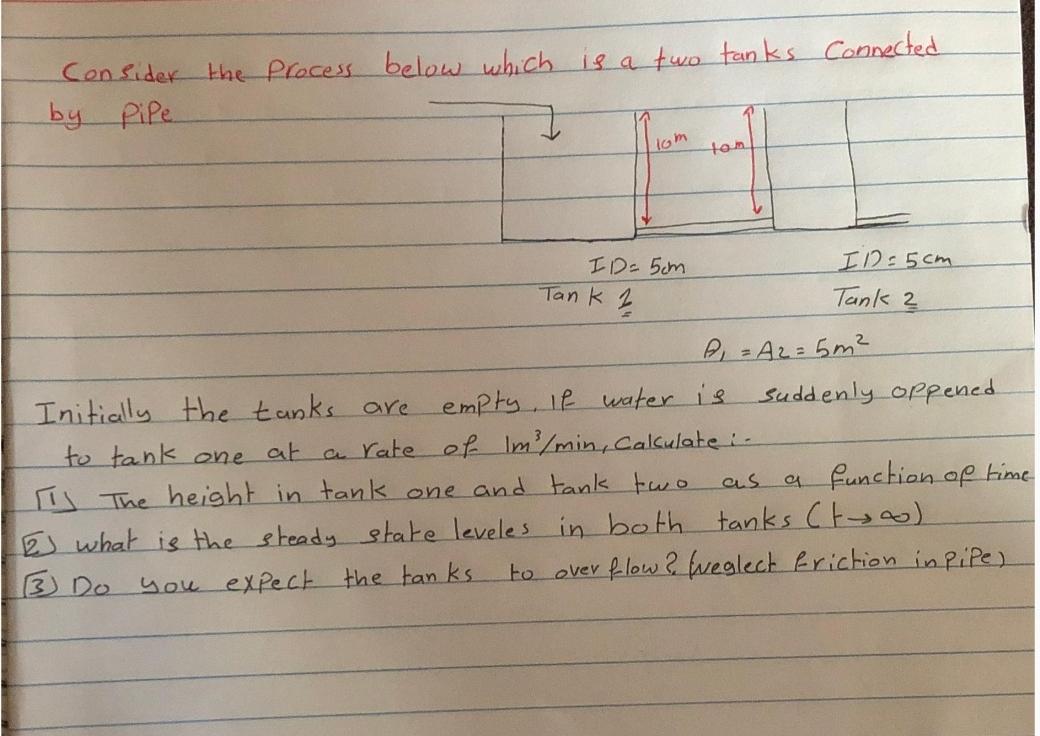 Consider the Process below which is a two tanks Connected
by PiPe
10m 10m
ID= 5cm ID= 5cm
Tank 1 Tank 2
A1 = A2 = 5m²
Initially the tanks are empty. if water is suddenly oppened
to tank one at a rate of 1m³/min, Calculate :-
(1) The height in tank one and tank two as a function of time
(2) what is the steady state leveles in both tanks (t→∞)
(3) Do you expect the tanks to over flow? (neglect friction in PiPe)